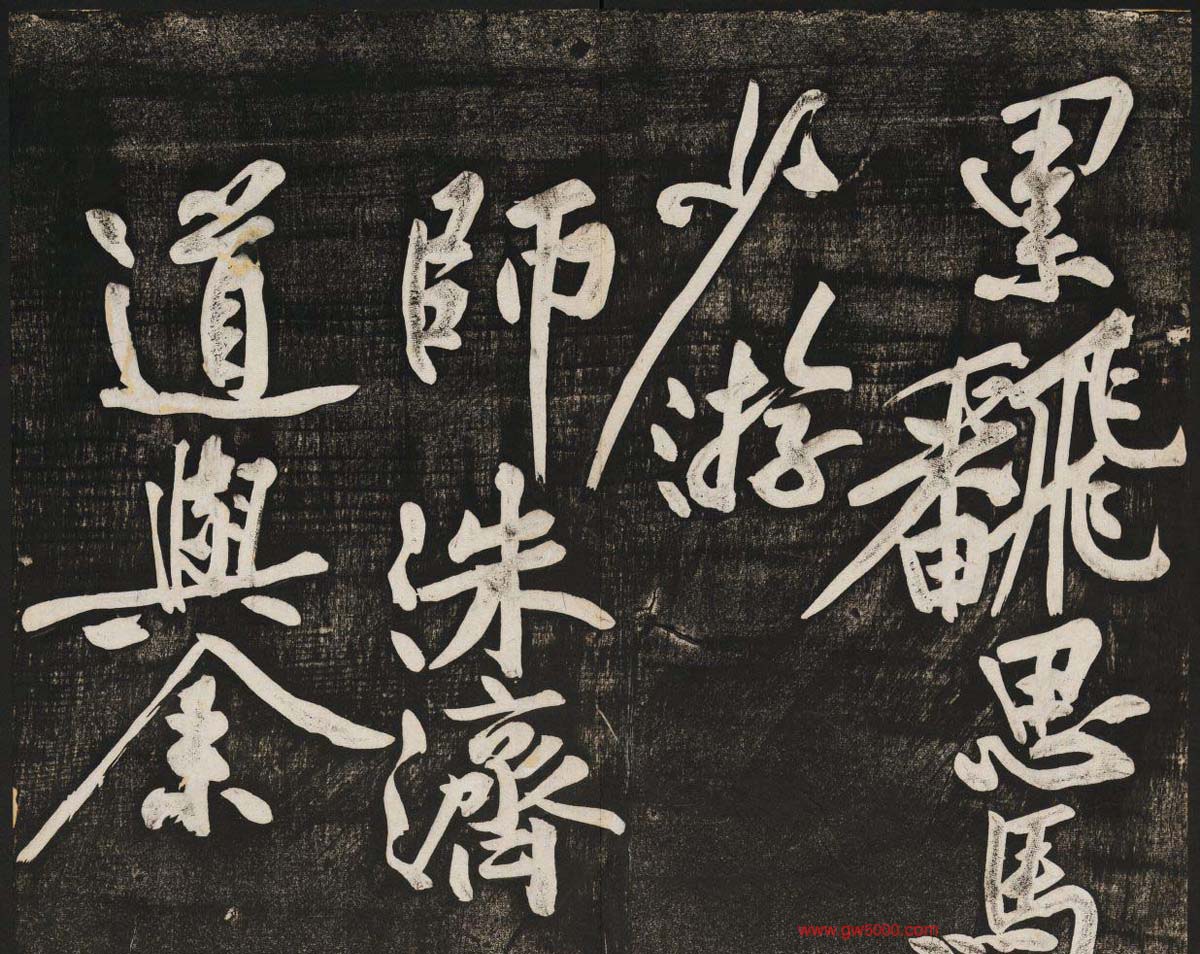 累飜思馬
少游
師洙濟
道與余
www.gw5000.com